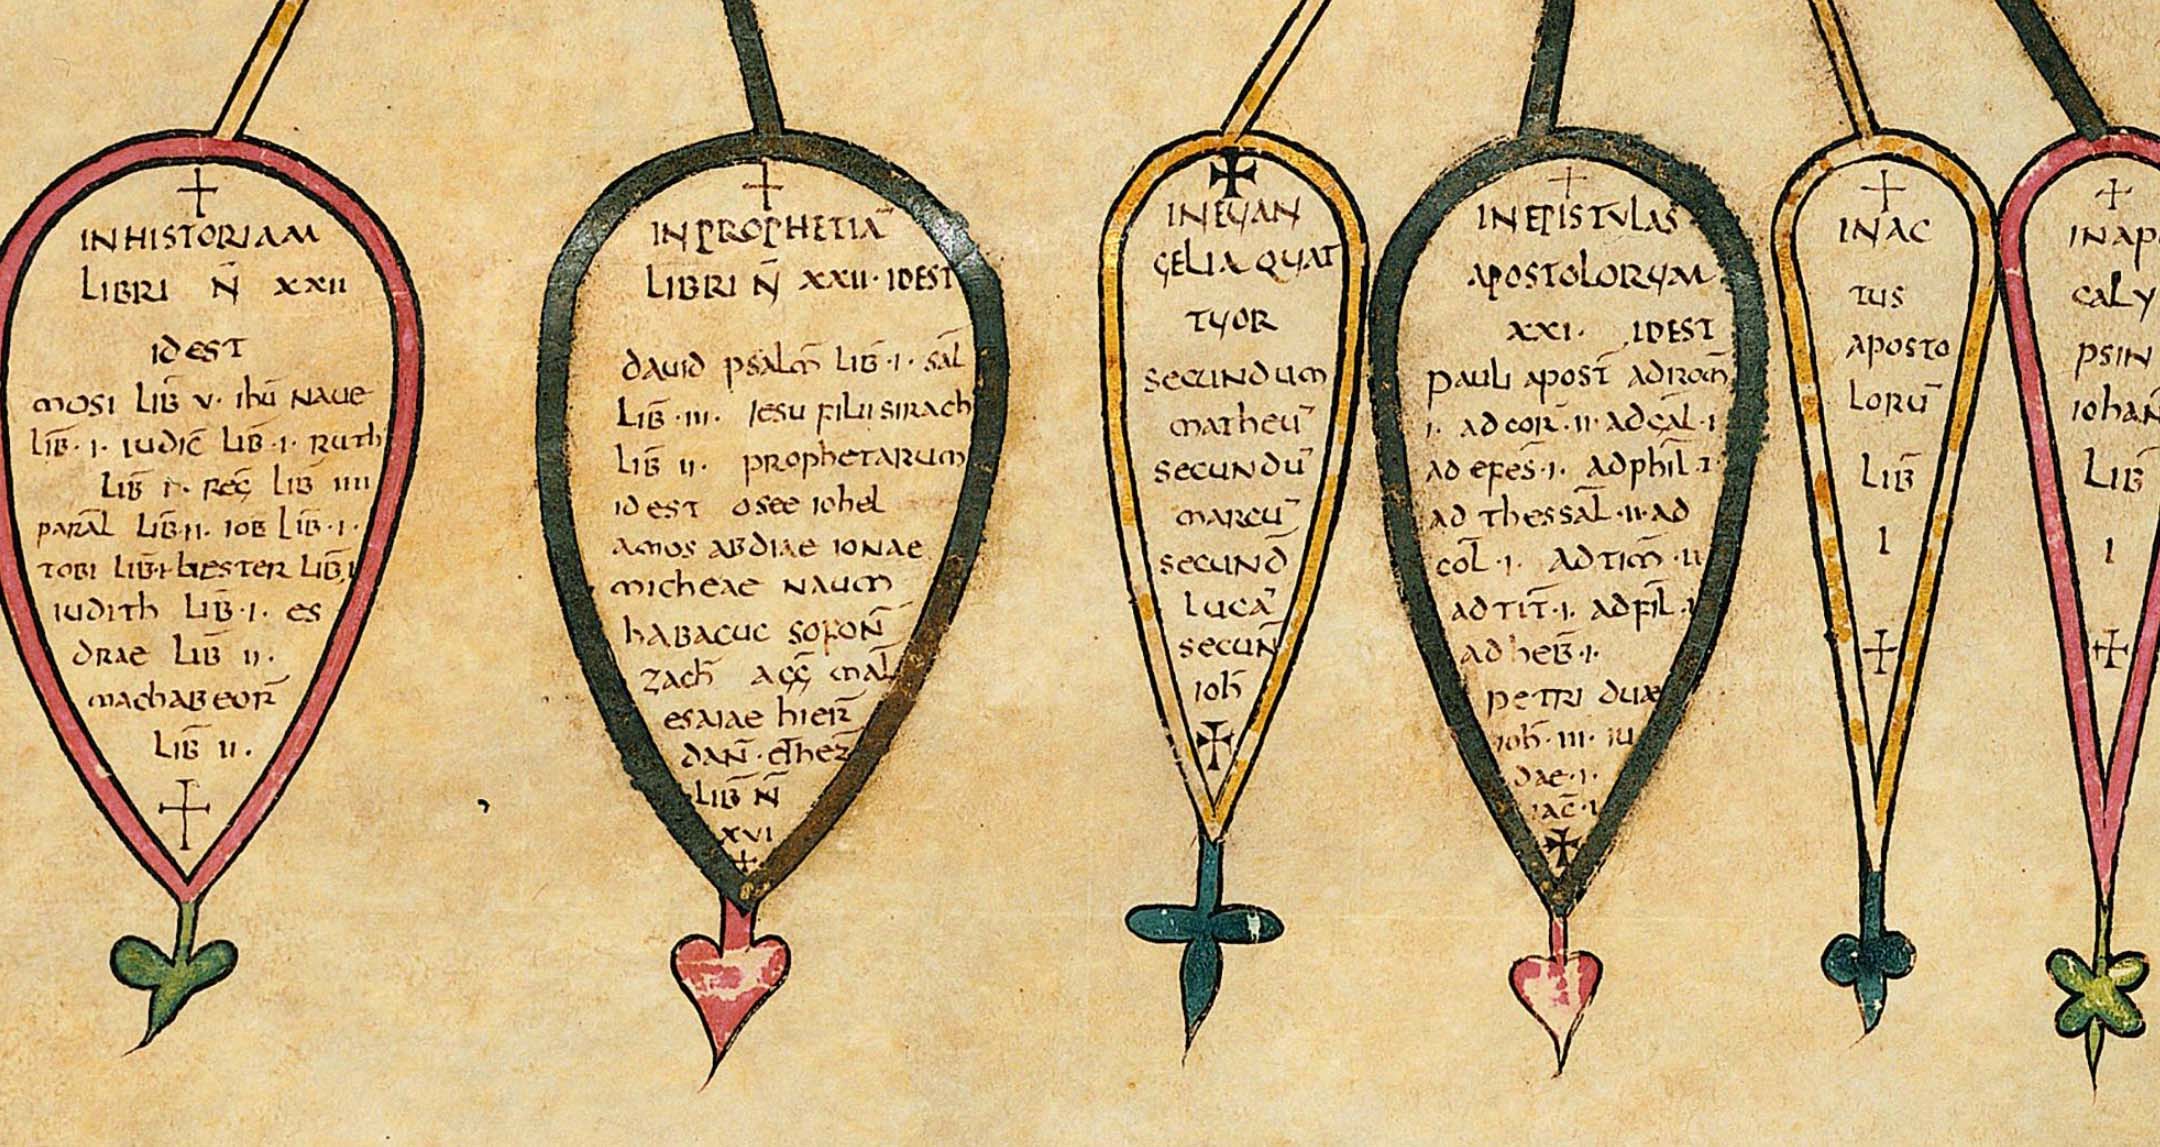 INHISTORIAM
LIBRI N̄ XXII
IDEST
MOSI LIB̄ V· IHŪ NAUE
LIB̄·I· IUDIC̄ LIB̄·I· RUTH
LIB̄ I· REḠ LIB̄ IIII
PARAL̄ LIB̄·II· IOB LIB̄·I·
TOBI LIB̄·I· HESTER LIB̄·I
IUDITH LIB̄·I· ES
DRAE LIB̄ II·
MACHABEOR̄
LIB̄ II·
INPROPHETIĀ
LIBRI N̄ XXII· IDEST
DAUID PSALM̄ LIB̄·I· SAL̄
LIB̄·III· IESU FILII SIRACH
LIB̄ II· PROPHETARUM
IDEST OSEE IOHEL
AMOS ABDIAE IONAE
MICHEAE NAUM
HABACUC SOFON̄
ZACH̄ AGḠ MAL̄
ESAIAE HIER̄
DAN̄· ETHEZ̄
LIB̄ N̄
XVI
INEUAN
GELIA QUAT
TUOR
SECUNDUM
MATHEŪ
SECUNDŪ
MARCŪ
SECUND̄
LUCĀ
SECUN̄
IOH̄
INEPISTULAS
APOSTOLORUM
XXI· IDEST
PAULI APOST̄ ADROM̄
I· ADCOR̄·II· ADGAL̄·I
ADEFES̄·I· ADPHIL̄·I
AD THESSAL̄·II· AD
COL̄·I· ADTIM̄·II
ADTIT̄·I· ADFIL̄·I
ADHEB̄·I·
PETRI DUAE
IOH̄·III· IU
DAE·I·
IAC̄·I
INAC
TUS
APOSTO
LORŪ
LIB̄
I
INAPO
CALY
PSIN
IOHAN
LIB̄
I